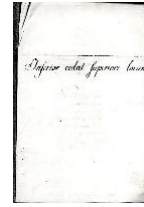 Inferior cedat superiori